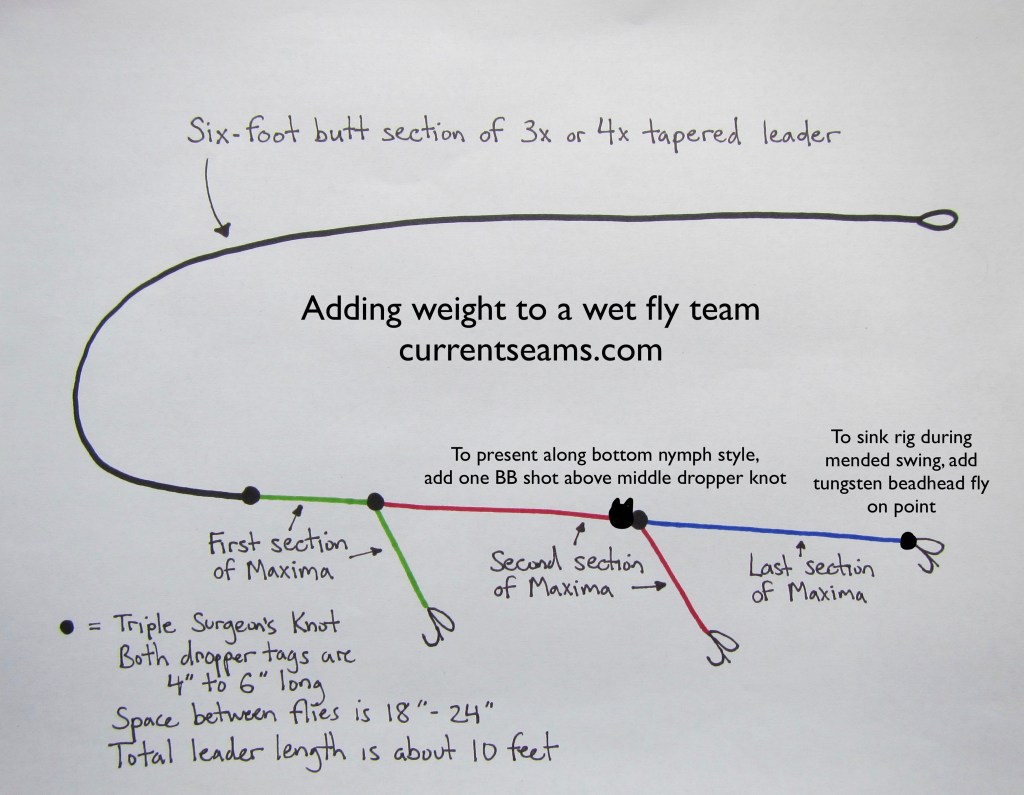 Six-foot butt section of 3x or 4x tapered leader
Adding weight to a wet fly team
currentseams.com
To present along bottom nymph style,
add one BB shot above middle dropper knot
To sink rig during
mended swing, add
tungsten beadhead fly
on point
First section
of Maxima
Second section
of Maxima
Last section
of Maxima
= Triple Surgeon's Knot
Both dropper tags are
4" to 6" long
Space between flies is 18"- 24"
Total leader length is about 10 feet